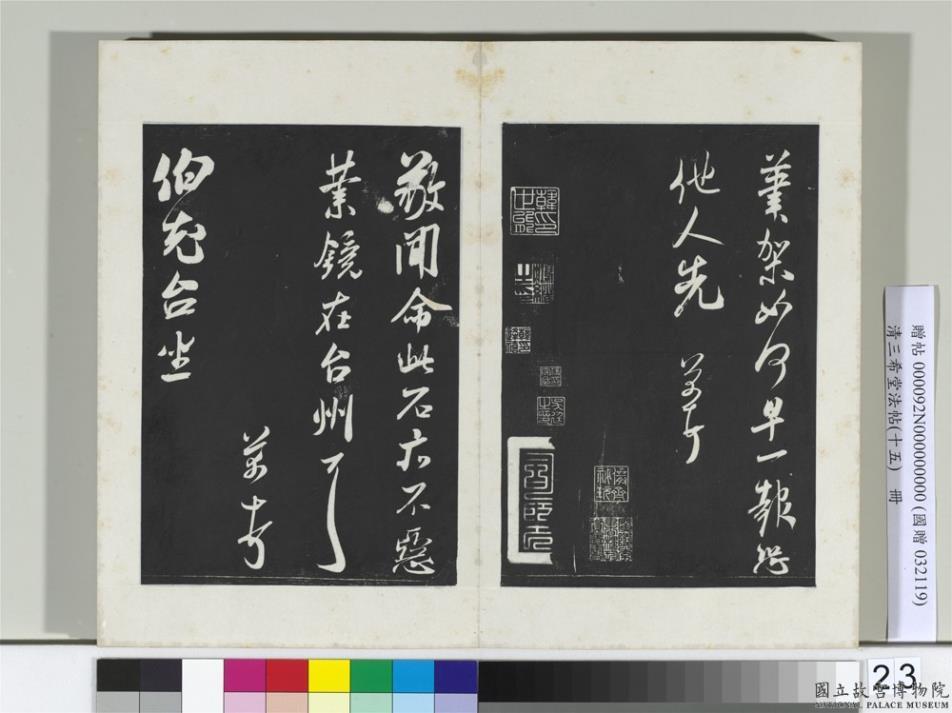 筆架如何早一報恐
他人先 芾頓首
敬聞命此石亦不惡
業鏡在台州
芾頓首
伯充台坐
贈帖 000092N000000000 (國贈 032119)
清三希堂法帖(十五) 冊
23
國立故宮博物院
NATIONAL PALACE MUSEUM